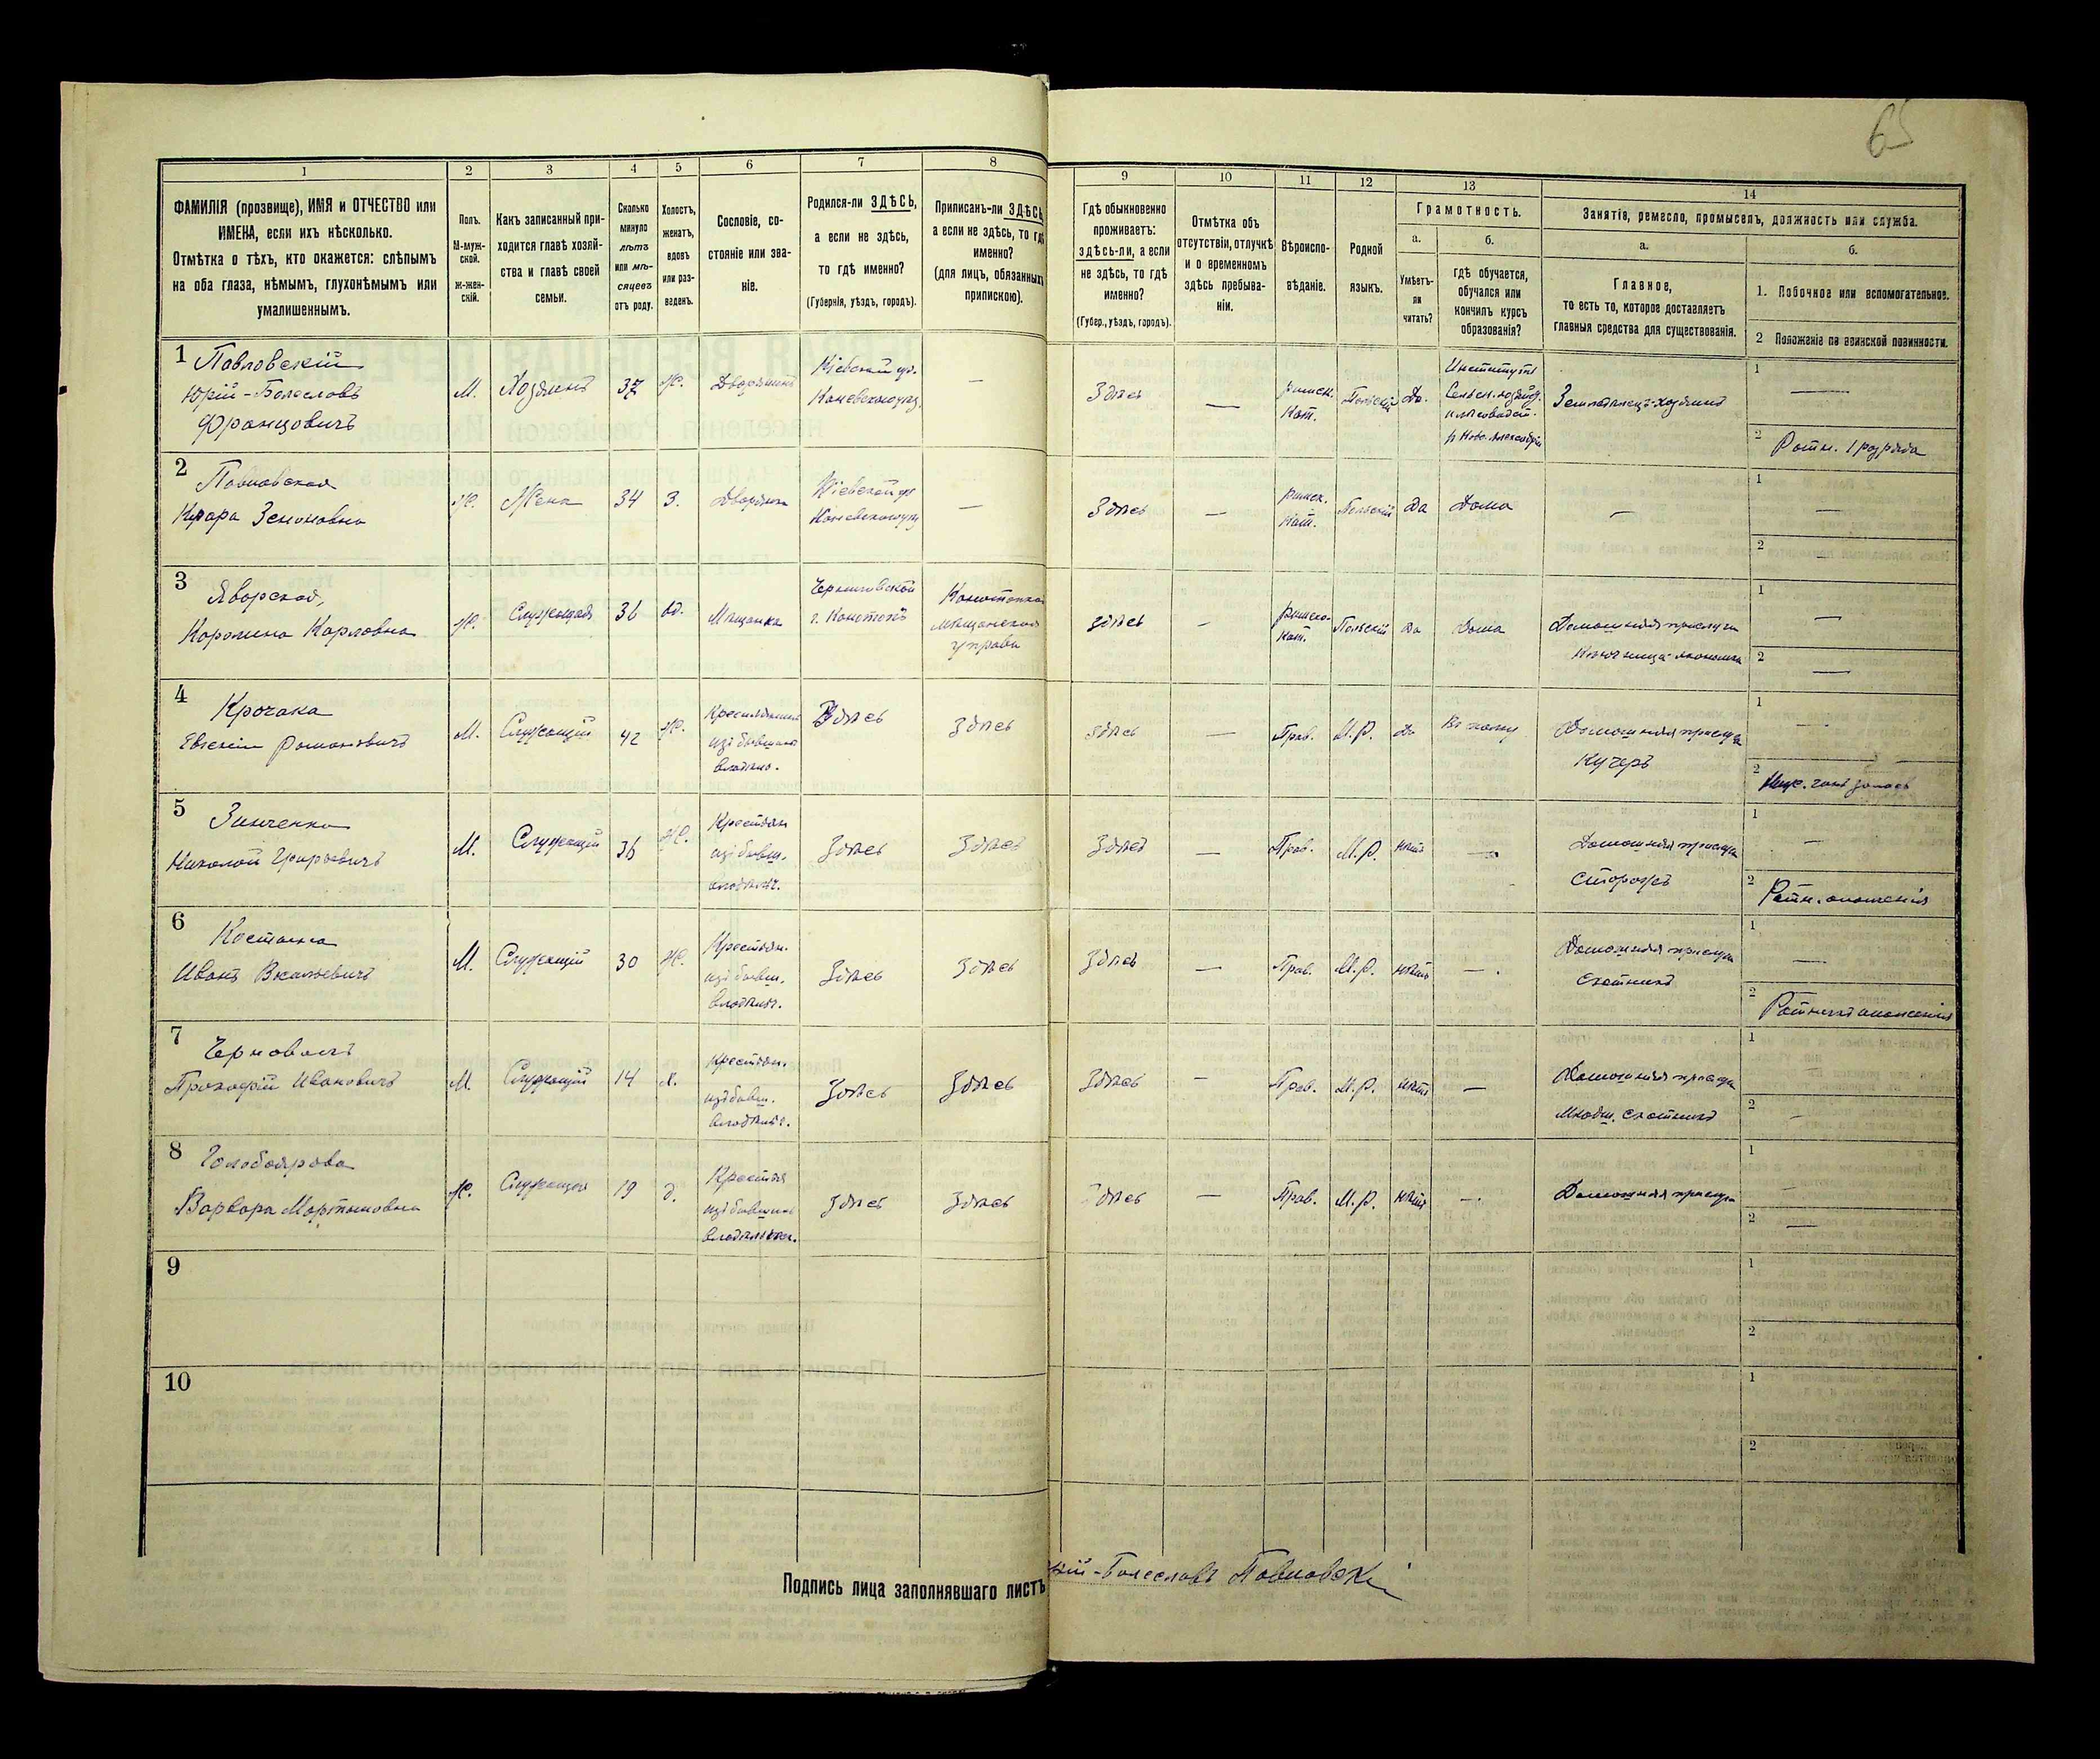 65
1 2 3 4 5 6 7 8 9 10 11 12 13 14
ФАМИЛІЯ (прозвище), ИМЯ и ОТЧЕСТВО или
ИМЕНА, если ихъ нѣсколько.
Отмѣтка о тѣхъ, кто окажется: слѣпымъ
на оба глаза, нѣмымъ, глухонѣмымъ или
умалишеннымъ.
Полъ.
М-муж-
ской.
Ж-жен-
скій.
Какъ записанный при-
ходится главѣ хозяй-
ства и главѣ своей
семьи.
Сколько
минуло
лѣтъ
или мѣ-
сяцевъ
отъ роду.
Холостъ,
женатъ,
вдовъ
или раз-
веденъ.
Сословіе, со-
стояніе или зва-
ніе.
Родился-ли ЗДѢСЬ,
а если не здѣсь,
то гдѣ именно?
(Губернія, уѣздъ, городъ).
Приписанъ-ли ЗДѢСЬ
а если не здѣсь, то гдѣ
именно?
(для лицъ, обязанныхъ
припискою).
Гдѣ обыкновенно
проживаетъ:
здѣсь-ли, а если
не здѣсь, то гдѣ
именно?
(Губер., уѣздъ, городъ).
Отмѣтка объ
отсутствіи, отлучкѣ
и о временномъ
здѣсь пребыва-
ніи.
Вѣроиспо-
вѣданіе.
Родной
языкъ.
Грамотность.
а.
Умѣетъ-
ли
читать?
б.
гдѣ обучается,
обучался или
кончилъ курсъ
образованія?
Занятіе, ремесло, промыселъ, должность или служба.
а.
Главное,
то есть то, которое доставляетъ
главныя средства для существованія.
б.
1. Побочное или вспомогательное.
2 Положеніе по воинской повинности.
1 Павловскій
Юрій-Болеславъ
Францовичъ
М. Хозяинъ 37 Ж. Дворянинъ
Кіевской губ.
Каневскаго уѣз.
—
Здѣсь — римск. Кат. Польскій Да.
Институтъ
Сельск. хозяйст.
и лѣсоводст.
в Ново-Александріи
Землевладѣлецъ-хозяинъ
1 —
2 Ратн. 1 разряда
2 Павловская
Клара Зеноновна
Ж. Жена 34 З. Дворянка
Кіевской губ
Каневскаго уѣз
—
Здѣсь — римск. Кат. Польскій Да Дома —
1 —
2 —
3 Яворская,
Каролина Карловна
Ж. Служащая 36 вд. Мѣщанка
Черниговской
г. Конотопъ
Конотопская
мѣщанская
управа
здѣсь — римско-кат. Польскій Да Дома
Домашняя прислуга
Ключница-экономка
1 —
2 —
4 Крочака
Евгеній Романовичъ
М. Служащій 42 Ж.
Крестьянинъ
изъ бывшихъ
владѣльч.
Здѣсь Здѣсь здѣсь — Прав. М.Р. Да
Въ полку
Домашняя прислуга
Кучеръ
1 —
2 Ниж. чинъ запаса
5 Зинченко
Николай Григорьевичъ
М. Служащій 36 Ж.
Крестьян
изъ бывш.
владѣльч.
Здѣсь Здѣсь Здѣсь — Прав. М.Р. нѣтъ —
Домашняя прислуга
Сторожъ
1 —
2 Ратн. ополченія
6
Иванъ Васильевичъ
М. Служащій 30 Ж.
Крестьян.
изъ бывш.
владѣльч.
Здѣсь Здѣсь Здѣсь — Прав. М.Р. нѣтъ —.
Домашняя прислуга
Скотникъ
1 —
2 Ратникъ ополченія
7 Черноволъ
Прокофій Ивановичъ
М. Служащій 14 х.
Крестьян.
изъ бывш.
владѣльч.
Здѣсь Здѣсь Здѣсь — Прав. М.Р. нѣтъ —
Домашняя прислуга
Младш. скотникъ
1 —
2 —
8 Голобоярова
Варвара Мартыновна
Ж. Служащая 19 д.
Крестья
изъ бывшихъ
владѣльческ.
Здѣсь Здѣсь Здѣсь — Прав. М.Р. нѣтъ —.
Домашняя прислуга
1 —
2 —
9
1
2
10
1
2
Подпись лица заполнявшаго листъ
рій-Болеславъ Павловскій